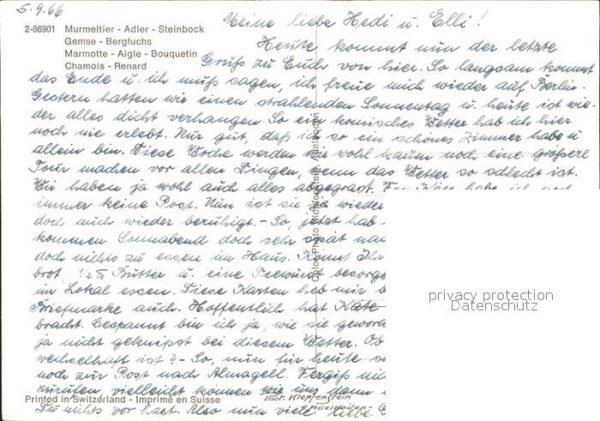 5.9.66
2-86901 Murmeltier - Adler - Steinbock
Gemse - Bergfuchs
Marmotte - Aigle - Bouquetin
Chamois - Renard
Meine liebe Hedi u. Elli!
Heute kommt nun der letzte
Gruß zu Euch von hier. So langsam kommt
das Ende u. ich muß sagen, ich freue mich wieder auf Berlin.
Gestern hatten wir einen strahlenden Sonnentag u. heute ist wie-
der alles dicht verhangen. So ein komisches Wetter hab ich hier
noch nie erlebt. Nur gut, daß ich so ein schönes Zimmer habe u.
allein bin. Diese Woche werden wir wohl kaum noch eine größere
Tour machen vor allen Dingen, wenn das Wetter so schlecht ist.
Wir haben ja wohl auch alles abgegrast. habe ich
immer keine Post. Nun ist sie ja wieder
doch auch wieder beruhigt. - So, jetzt hab
kommen Sonnabend doch sehr spät
doch nichts zu essen im Haus. Könnt Ihr
brot, 1/2 Butter u. eine Teewurst besorge
im Lokal essen. Diese Karten heb mir b
Briefmarke auch. Hoffentlich hat Käte
bracht. Gespannt bin ich ja, wie sie gewor
ja nicht geknipst bei diesem Wetter. Ob
wechselhaft ist? - So, nun für heute
noch zur Post nach Almagell. Vergiß
zurufen, vielleicht können wir uns dann
Du nichts vor hast. Also nun viele liebe
Color Photo
privacy protection
Datenschutz
Printed in Switzerland - Imprimé en Suisse
Phot. Klopfenstein
Adelboden